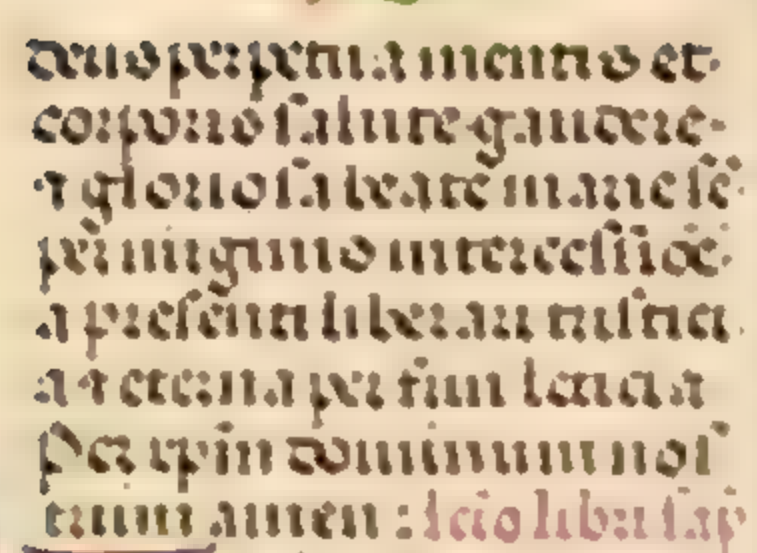 deus perpetua mentis et
corporis salute gaudere
⁊ gloriosa beate marie sē
per uirginis intercessiōe
a presenti liberari tristicia
⁊ eterna per frui leticia
Per xpm dominum nos
trum amen : lcio libri sap